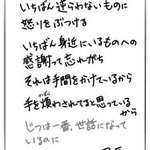 いちばん逆らわないものに
怒りをぶつける
いちばん身近にいるものへの
感謝って忘れがち
それは手間をかけているから
手を煩わさせてると思っているから
じつは一番、世話になって
いるのに